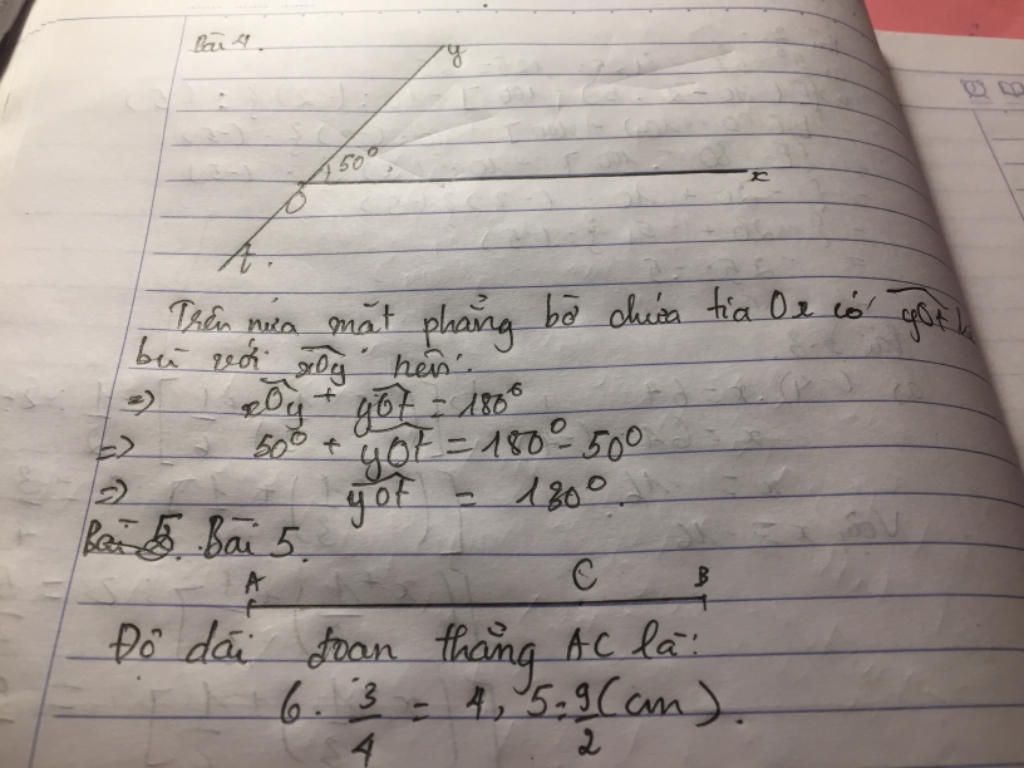 Bài 4.
y
50°
x
O
t.
Trên nửa mặt phẳng bờ chứa tia Ox có yOt là
bù với xOy nên:
=> xOy + yOt = 180°
=> 50° + yOt = 180° - 50°
=> yOt = 130°.
Bài 5.
A C B
Độ dài đoan thẳng AC là:
6 . 3/4 = 4,5 = 9/2 (cm).